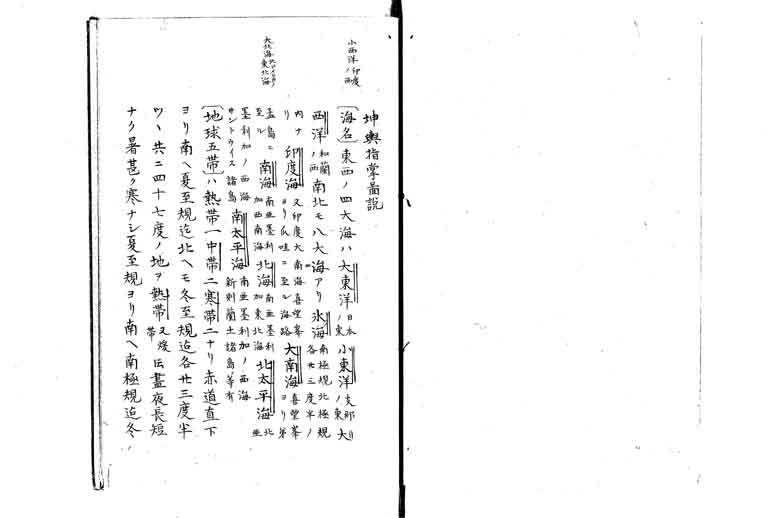 小西洋 印度ノ西
大北海 東北海
坤輿指掌啚説
〔海名〕東西ノ四大海ハ大東洋 日本ノ東 小東洋 支那ノ東 大
西洋 和蘭ノ西 南北モ八大海アリ氷海 南極規北極規各廿三度半ノ
内ナリ 印度海 又印度大南海喜望峯ヨリ爪哇ニ至ル海路 大南海 喜望峯ヨリ第
孟島ニ至ル 南海 南亜墨利加西南海 北海 南亜墨利加東北海 北太平海 北亜
墨利加ノ西海サントウイス諸島 南太平海 南亜墨利加ノ西海新則蘭土諸島等有
〔地球五帯〕ハ熱帯一中帯二寒帯二ナリ赤道直下
ヨリ南ヘ夏至規迄北ヘモ冬至規迄各廿三度半
ツヽ共ニ四十七度ノ地ヲ熱帯 又煖帯 㠯晝夜長短
ナク暑甚ク寒ナシ夏至規ヨリ南ヘ南極規迄冬